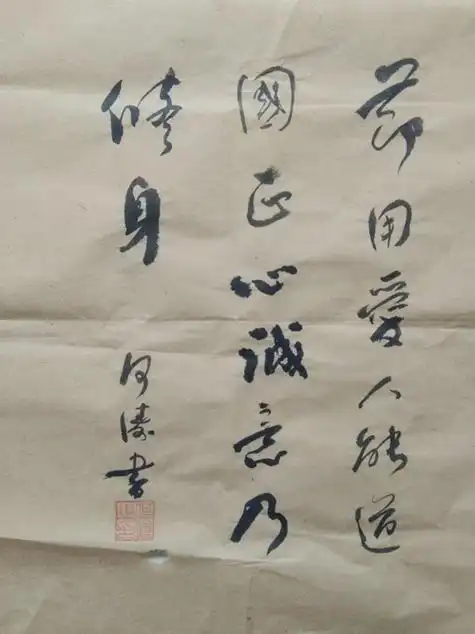 節用愛人能道
國正心誠意乃
脩身
何濤書